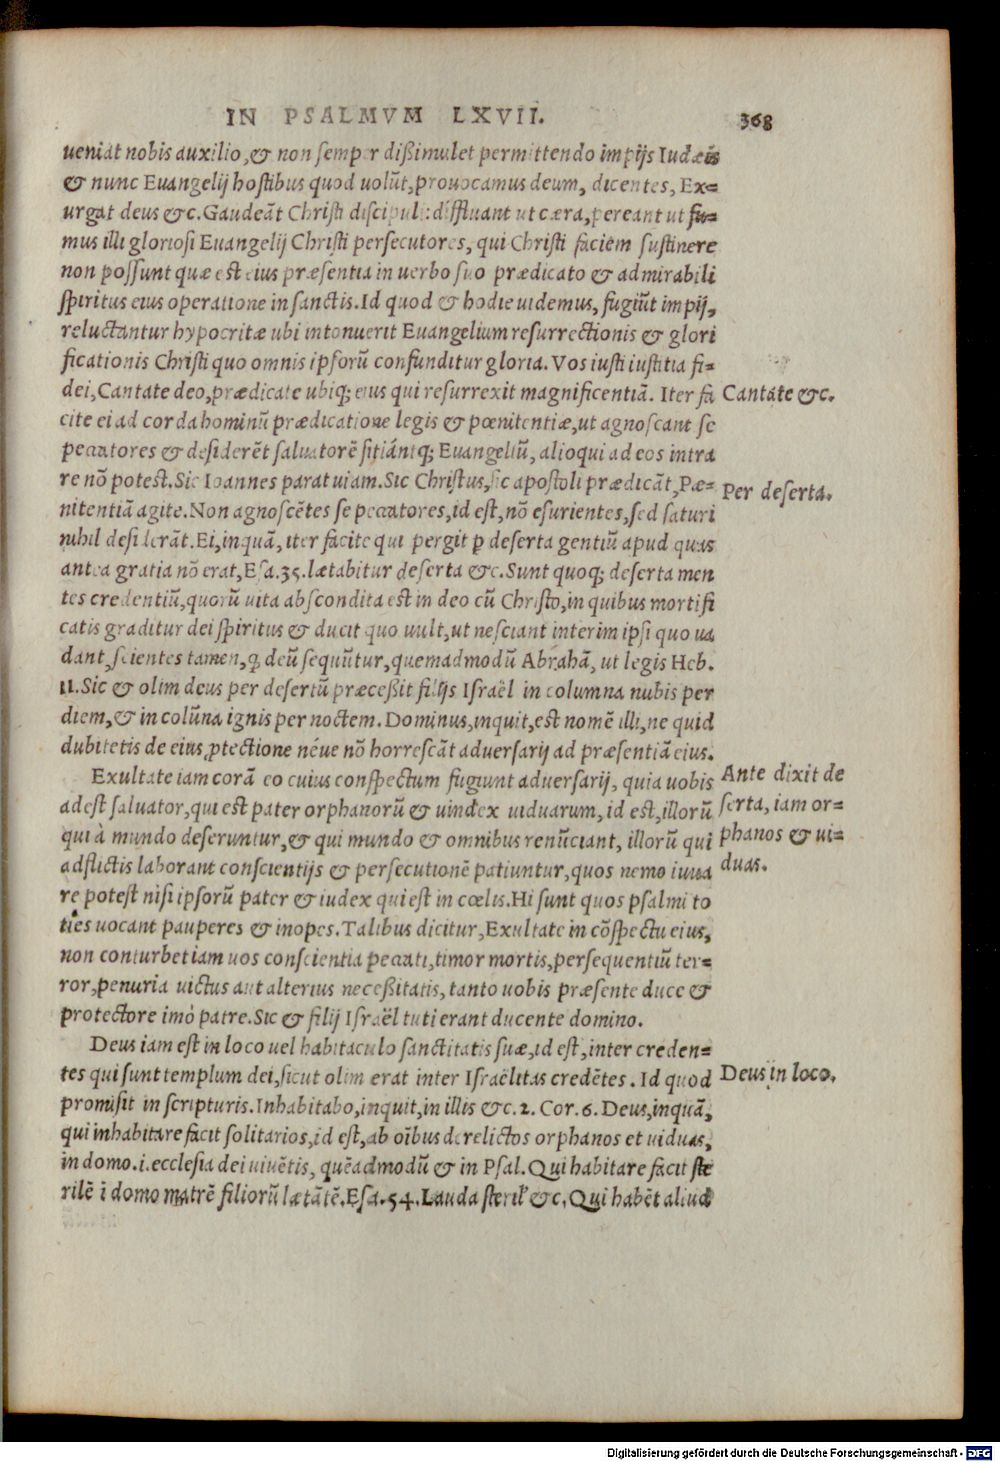 IN PSALMVM LXVII. 368
ueniat nobis auxilio, & non semper dißimulet permittendo impijs Iudæis
& nunc Euangelij hostibus quod uolũt, prouocamus deum, dicentes, Ex=
urgat deus &c. Gaudeãt Christi discipuli: diffluant ut cæra, pereant ut fu=
mus illi gloriosi Euangelij Christi persecutores, qui Christi faciem sustinere
non possunt quæ est eius præsentia in uerbo suo prædicato & admirabili
spiritus eius operatione in sanctis. Id quod & hodie uidemus, fugiũt impij,
reluctantur hypocritæ ubi intonuerit Euangelium resurrectionis & glori
ficationis Christi quo omnis ipsorũ confunditur gloria. Vos iusti iustitia fi=
dei, Cantate deo, prædicate ubiq; eius qui resurrexit magnificentiã. Iter fa
Cantate &c.
cite ei ad corda hominũ prædicatione legis & pœnitentiæ, ut agnoscant se
peccatores & desiderẽt saluatorẽ sitiántq; Euangeliũ, alioqui ad eos intra
re nõ potest. Sic Ioannes parat uiam. Sic Christus, sic apostoli prædicãt, Pæ=
Per deserta.
nitentiã agite. Non agnoscẽtes se peccatores, id est, nõ esurientes, sed saturi
nihil desiderãt. Ei, inquã, iter facite qui pergit p deserta gentiũ apud quas
antea gratia nõ erat, Esa. 35. lætabitur deserta &c. Sunt quoq; deserta men
tes credentiũ, quorũ uita abscondita est in deo cũ Christo, in quibus mortifi
catis graditur dei spiritus & ducit quo uult, ut nesciant interim ipsi quo ua
dant, scientes tamen, q̃ deũ sequũtur, quemadmodũ Abrahã, ut legis Heb.
11. Sic & olim deus per desertũ præceßit filijs Israël in columna nubis per
diem, & in colũna ignis per noctem. Dominus, inquit, est nomẽ illi, ne quid
dubitetis de eius ptectione néue nõ horrescãt aduersarij ad præsentiã eius.
Exultate iam corã eo cuius conspectum fugiunt aduersarij, quia uobis
Ante dixit de
adest saluator, qui est pater orphanorũ & uindex uiduarum, id est, illorũ
serta, iam or=
qui à mundo deseruntur, & qui mundo & omnibus renũciant, illorũ qui
phanos & ui=
adflictis laborant conscientijs & persecutionẽ patiuntur, quos nemo iuua
duas.
re potest nisi ipsorũ pater & iudex qui est in cœlis. Hi sunt quos psalmi to
ties uocant pauperes & inopes. Talibus dicitur, Exultate in cõspectu eius,
non conturbet iam uos conscientia peccati, timor mortis, persequentiũ ter=
ror, penuria uictus aut alterius neceßitatis, tanto uobis præsente duce &
protectore imò patre. Sic & filij Israël tuti erant ducente domino.
Deus iam est in loco uel habitaculo sanctitatis suæ, id est, inter creden=
tes qui sunt templum dei, sicut olim erat inter Israëlitas credẽtes. Id quod
Deus in loco.
promisit in scripturis. Inhabitabo, inquit, in illis &c. 2. Cor. 6. Deus, inquã,
qui inhabitare facit solitarios, id est, ab oĩbus derelictos orphanos et uiduas,
in domo. i. ecclesia dei uiuẽtis, quẽadmodũ & in Psal. Qui habitare facit ste
rilẽ ĩ domo matrẽ filiorũ lætãtẽ. Esa. 54. Lauda steril' &c. Qui habẽt aliud
Digitalisierung gefördert durch die Deutsche Forschungsgemeinschaft - DFG